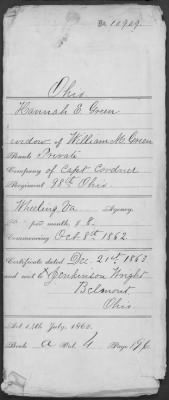 No 10,909.
Ohio
Hannah E. Green
widow of William M. Green
Rank Private
Company of Capt Cordner
Regiment 98th Ohio
Wheeling, Va Agency.
per month, $8.
Commencing Oct 8th 1862
Certificate dated Dec. 21st 1863
and sent to Jenkinson Wright
Belmont
Ohio
Act 14th July, 1862.
Book A Vol. 4 Page 196